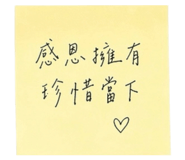 感恩擁有
珍惜當下
♡